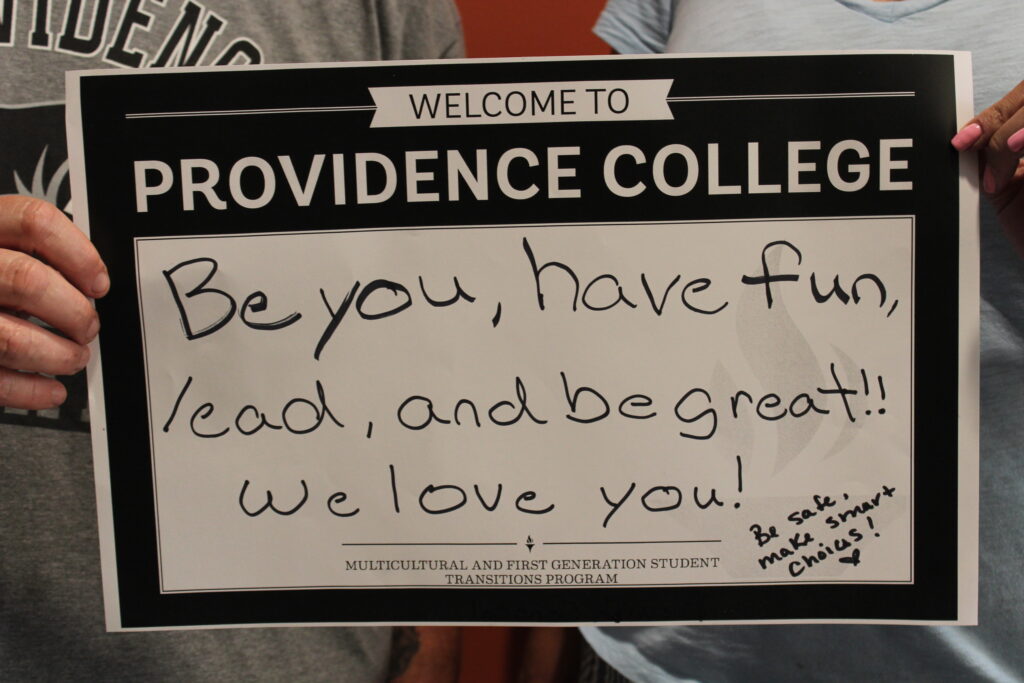 WELCOME TO
PROVIDENCE COLLEGE
Be you, have fun,
lead, and be great!!
We love you!
Be safe,
make smart
choices!
MULTICULTURAL AND FIRST GENERATION STUDENT
TRANSITIONS PROGRAM